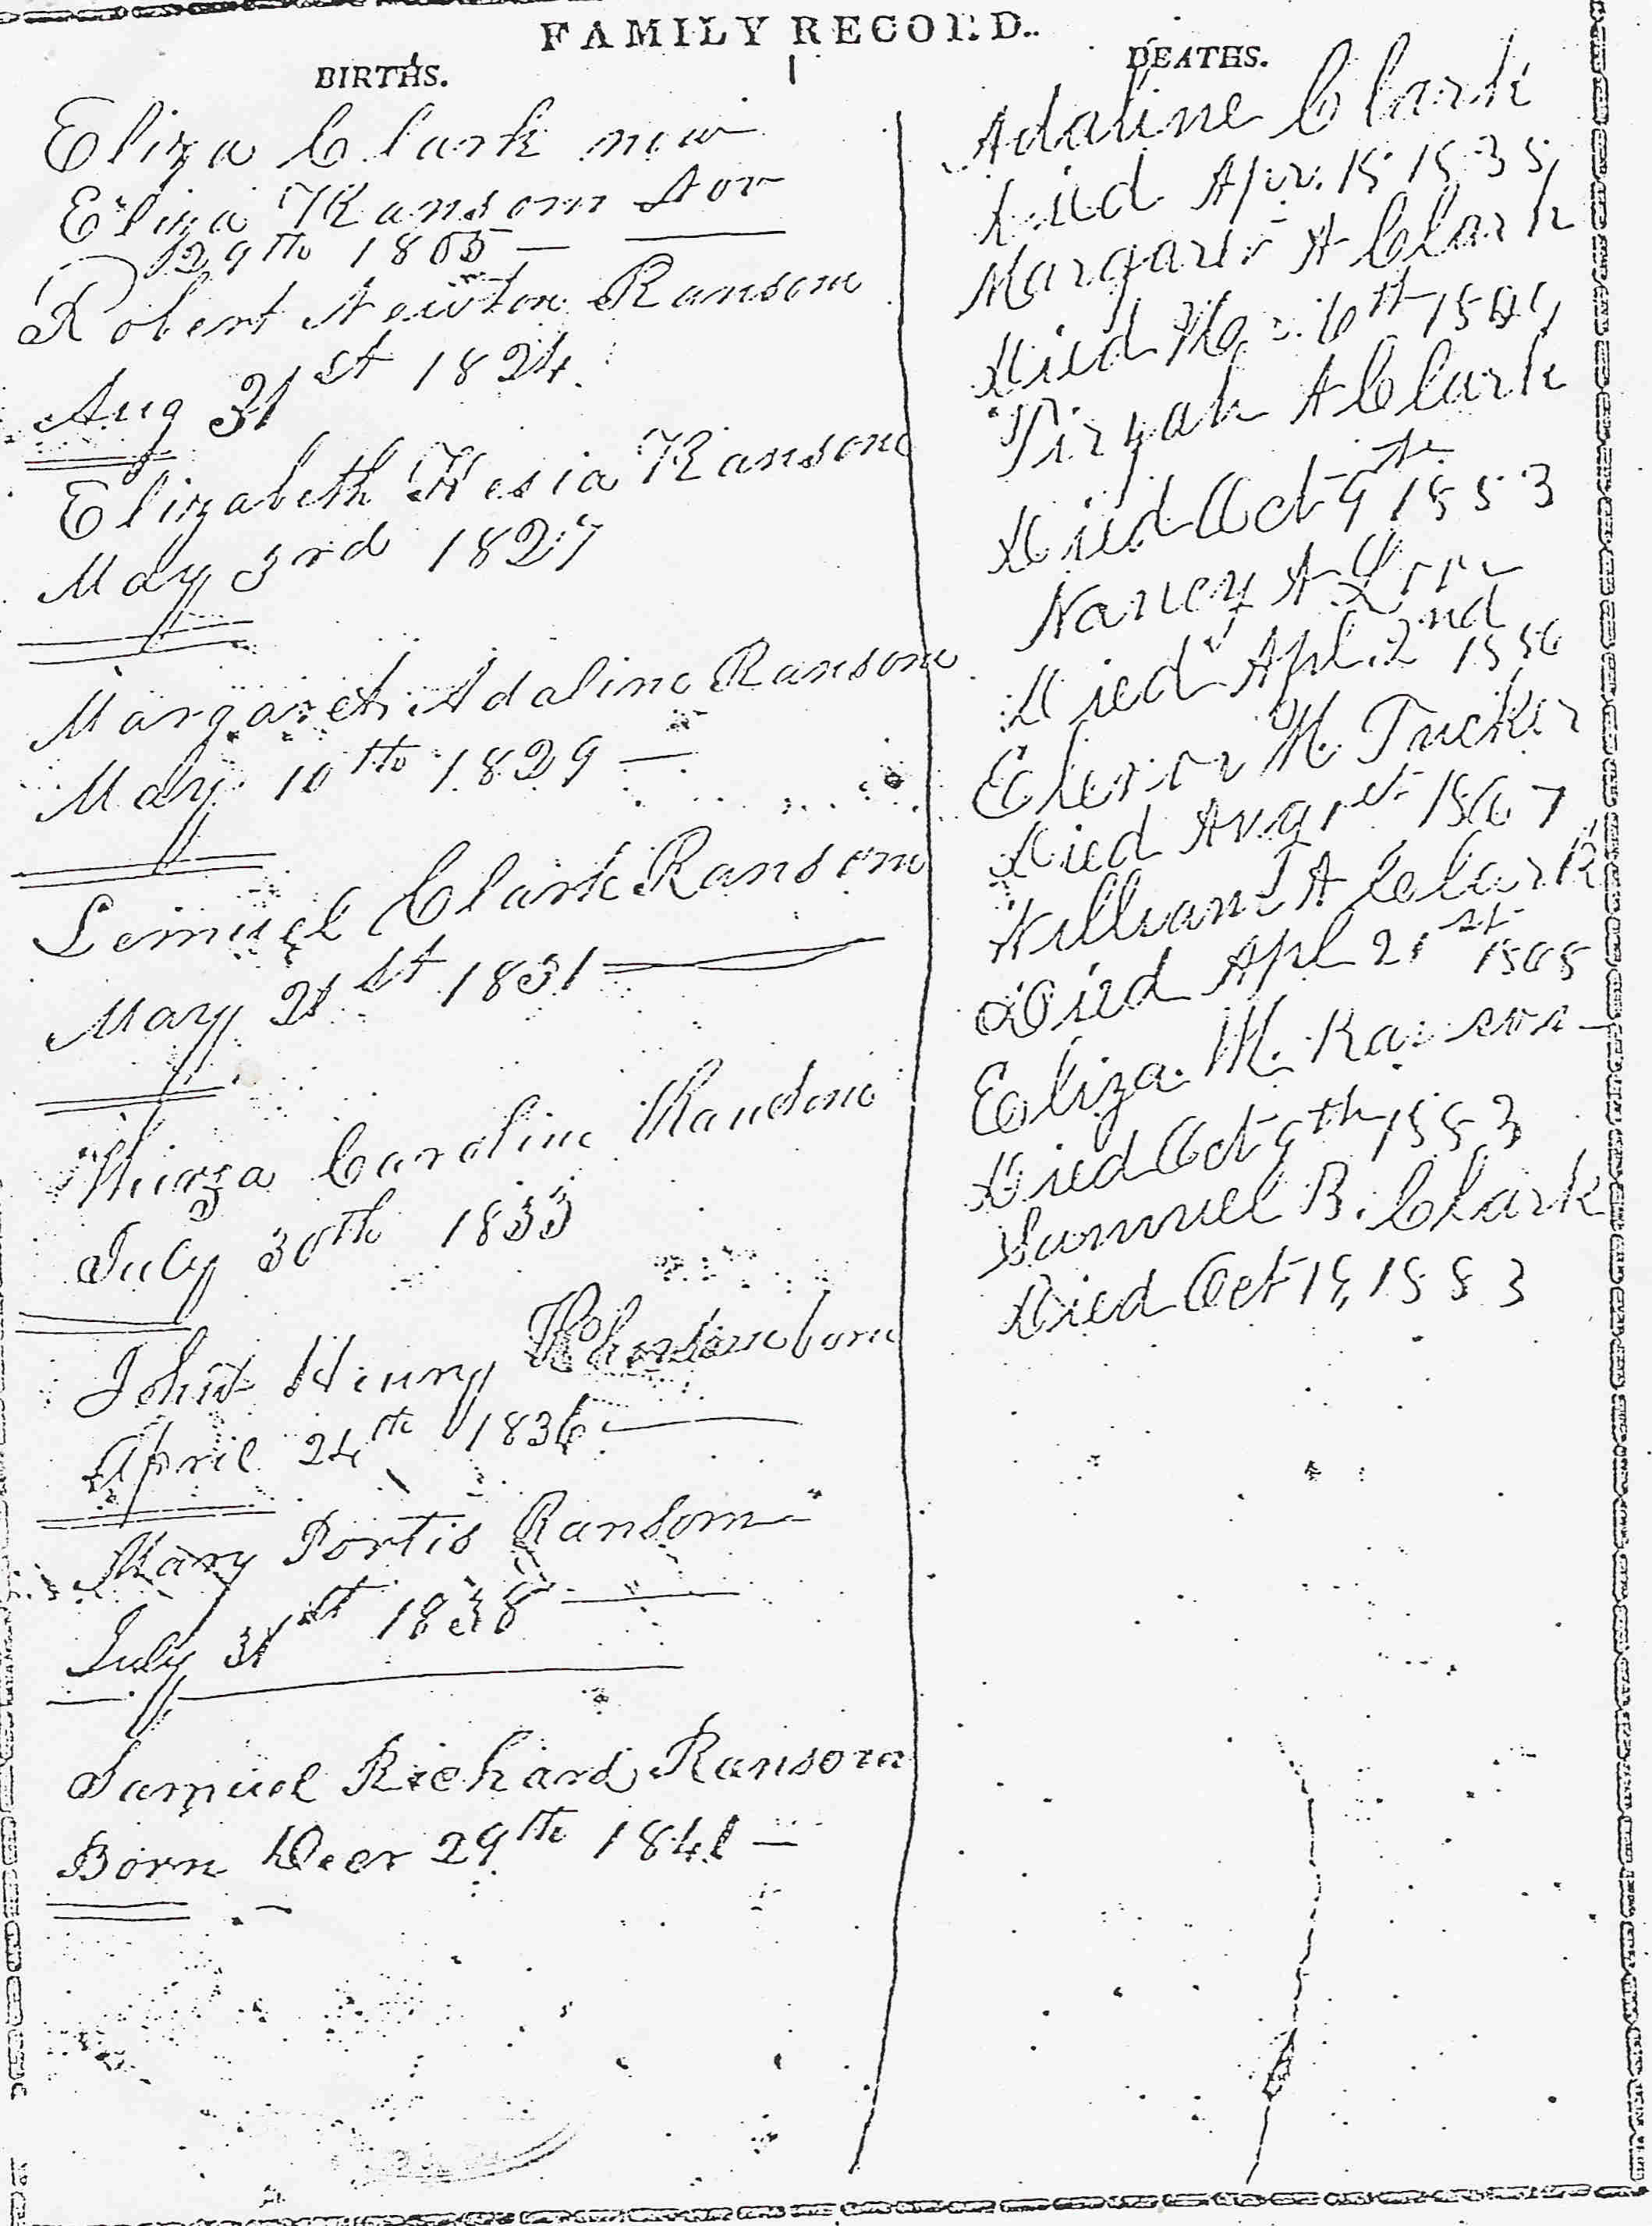 FAMILY RECORD.
BIRTHS.
Eliza Clark now
Eliza Ransom Nov
29th 1805
Robert Newton Ransom
Aug 31st 1824
Elizabeth Hesia Ransom
May 3rd 1827
Margaret Adaline Ransom
May 10th 1829
Lemuel Clark Ransom
May 21st 1831
Thirza Caroline Ransom
July 30th 1833
John Henry born
April 24th 1836
Mary Portis Ransom
July 31st 1838
Samuel Richard Ransom
Born Decr 29th 1841
DEATHS.
Adaline Clark
Died Apr. 1835
Margaret A Clark
Died 6th
Tirzah A Clark
Died Oct 9th 1853
Nancy A
Died Apl. 2nd 1856
M. Tucker
Died Aug 1st 1867
William A Clark
Died Apl 21st
Eliza M. Ransom
Died Oct 9th 1883
Samuel B. Clark
Died Oct 1883